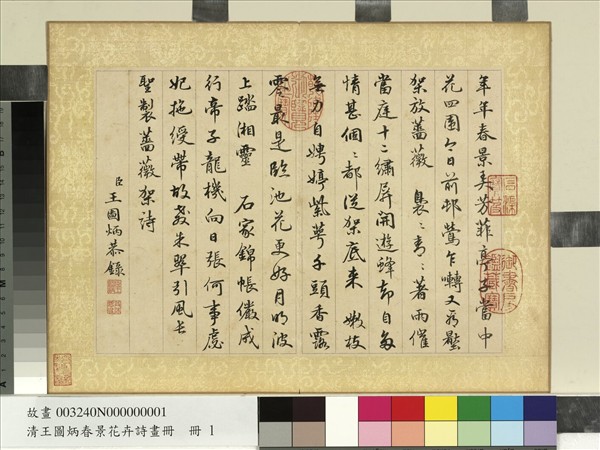 年年春景美芳菲亭子當中
花四圍今日前邨鶯乍囀又看壓
架放薔薇 裊〻青〻著雨催
當庭十二繡屏開遊蜂却自多
情甚個〻都從架底來 嫩枝
無力自娉婷紫萼千頭香露
零最是臨池花更好月明波
上踏湘靈 石家錦帳儼成
行帝子龍機向日張何事慮
妃拖綬帶故教朱翠引風長
聖製薔薇架詩
臣王圖炳恭錄
故畫 003240N000000001
清王圖炳春景花卉詩畫冊 冊 1